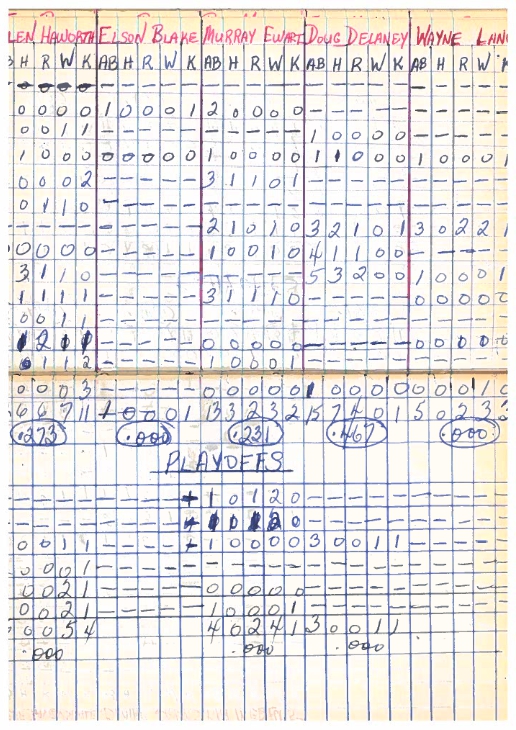 LEN HAWORTH ELSON BLAKE MURRAY EWART DOUG DELANEY WAYNE LANG
H R W K AB H R W K AB H R W K AB H R W K AB H R W
0 0 0 0 1 0 0 0 1 2 0 0 0 0 – – – – –
0 0 1 1 – – – – – – – – – – 1 0 0 0 0
1 0 0 0 0 0 0 0 0 1 0 0 0 0 1 1 0 0 0 1 0 0 0 1
0 0 0 2 – – – – – 3 1 1 0 1 – – – – –
0 1 1 0 – – – – – – – – – – – – – – –
– – – – – – – – – 2 1 0 1 0 3 2 1 0 1 3 0 2 2 1
0 0 0 0 – – – – – 1 0 0 1 0 4 1 1 0 0 – – – –
3 1 1 0 – – – – – – – – – – 5 3 2 0 0 1 0 0 0 1
1 1 1 1 – – – – – 3 1 1 1 0 – – – – – 0 0 0 0 0
0 0 1 1 – – – – – – – – – – – – – – – – – – –
1 2 1 1 – – – – – 0 0 0 0 0 – – – – – 0 0 0 0 0
0 1 1 2 – – – – – 1 0 0 0 1 – – – – – – – – –
0 0 0 3 – – – – – 0 0 0 0 0 1 0 0 0 0 0 0 0 1 0
6 6 7 11 1 0 0 0 1 13 3 2 3 2 15 7 4 0 1 5 0 2 3 3
.273 .000 .231 .467 .000
PLAYOFFS
– – – – – – – – + 1 0 1 2 0 – – – – –
– – – – – – – – + 1 0 1 2 0 – – – – –
0 0 1 1 – – – – + 1 0 0 0 0 3 0 0 1 1
0 0 0 1 – – – – – – – – – – – – – – –
0 0 2 1 – – – – – 0 0 0 0 0 – – – – –
0 0 2 1 – – – – – 1 0 0 0 1 – – – – –
0 0 5 4 4 0 2 4 1 3 0 0 1 1
.000 .000 .000